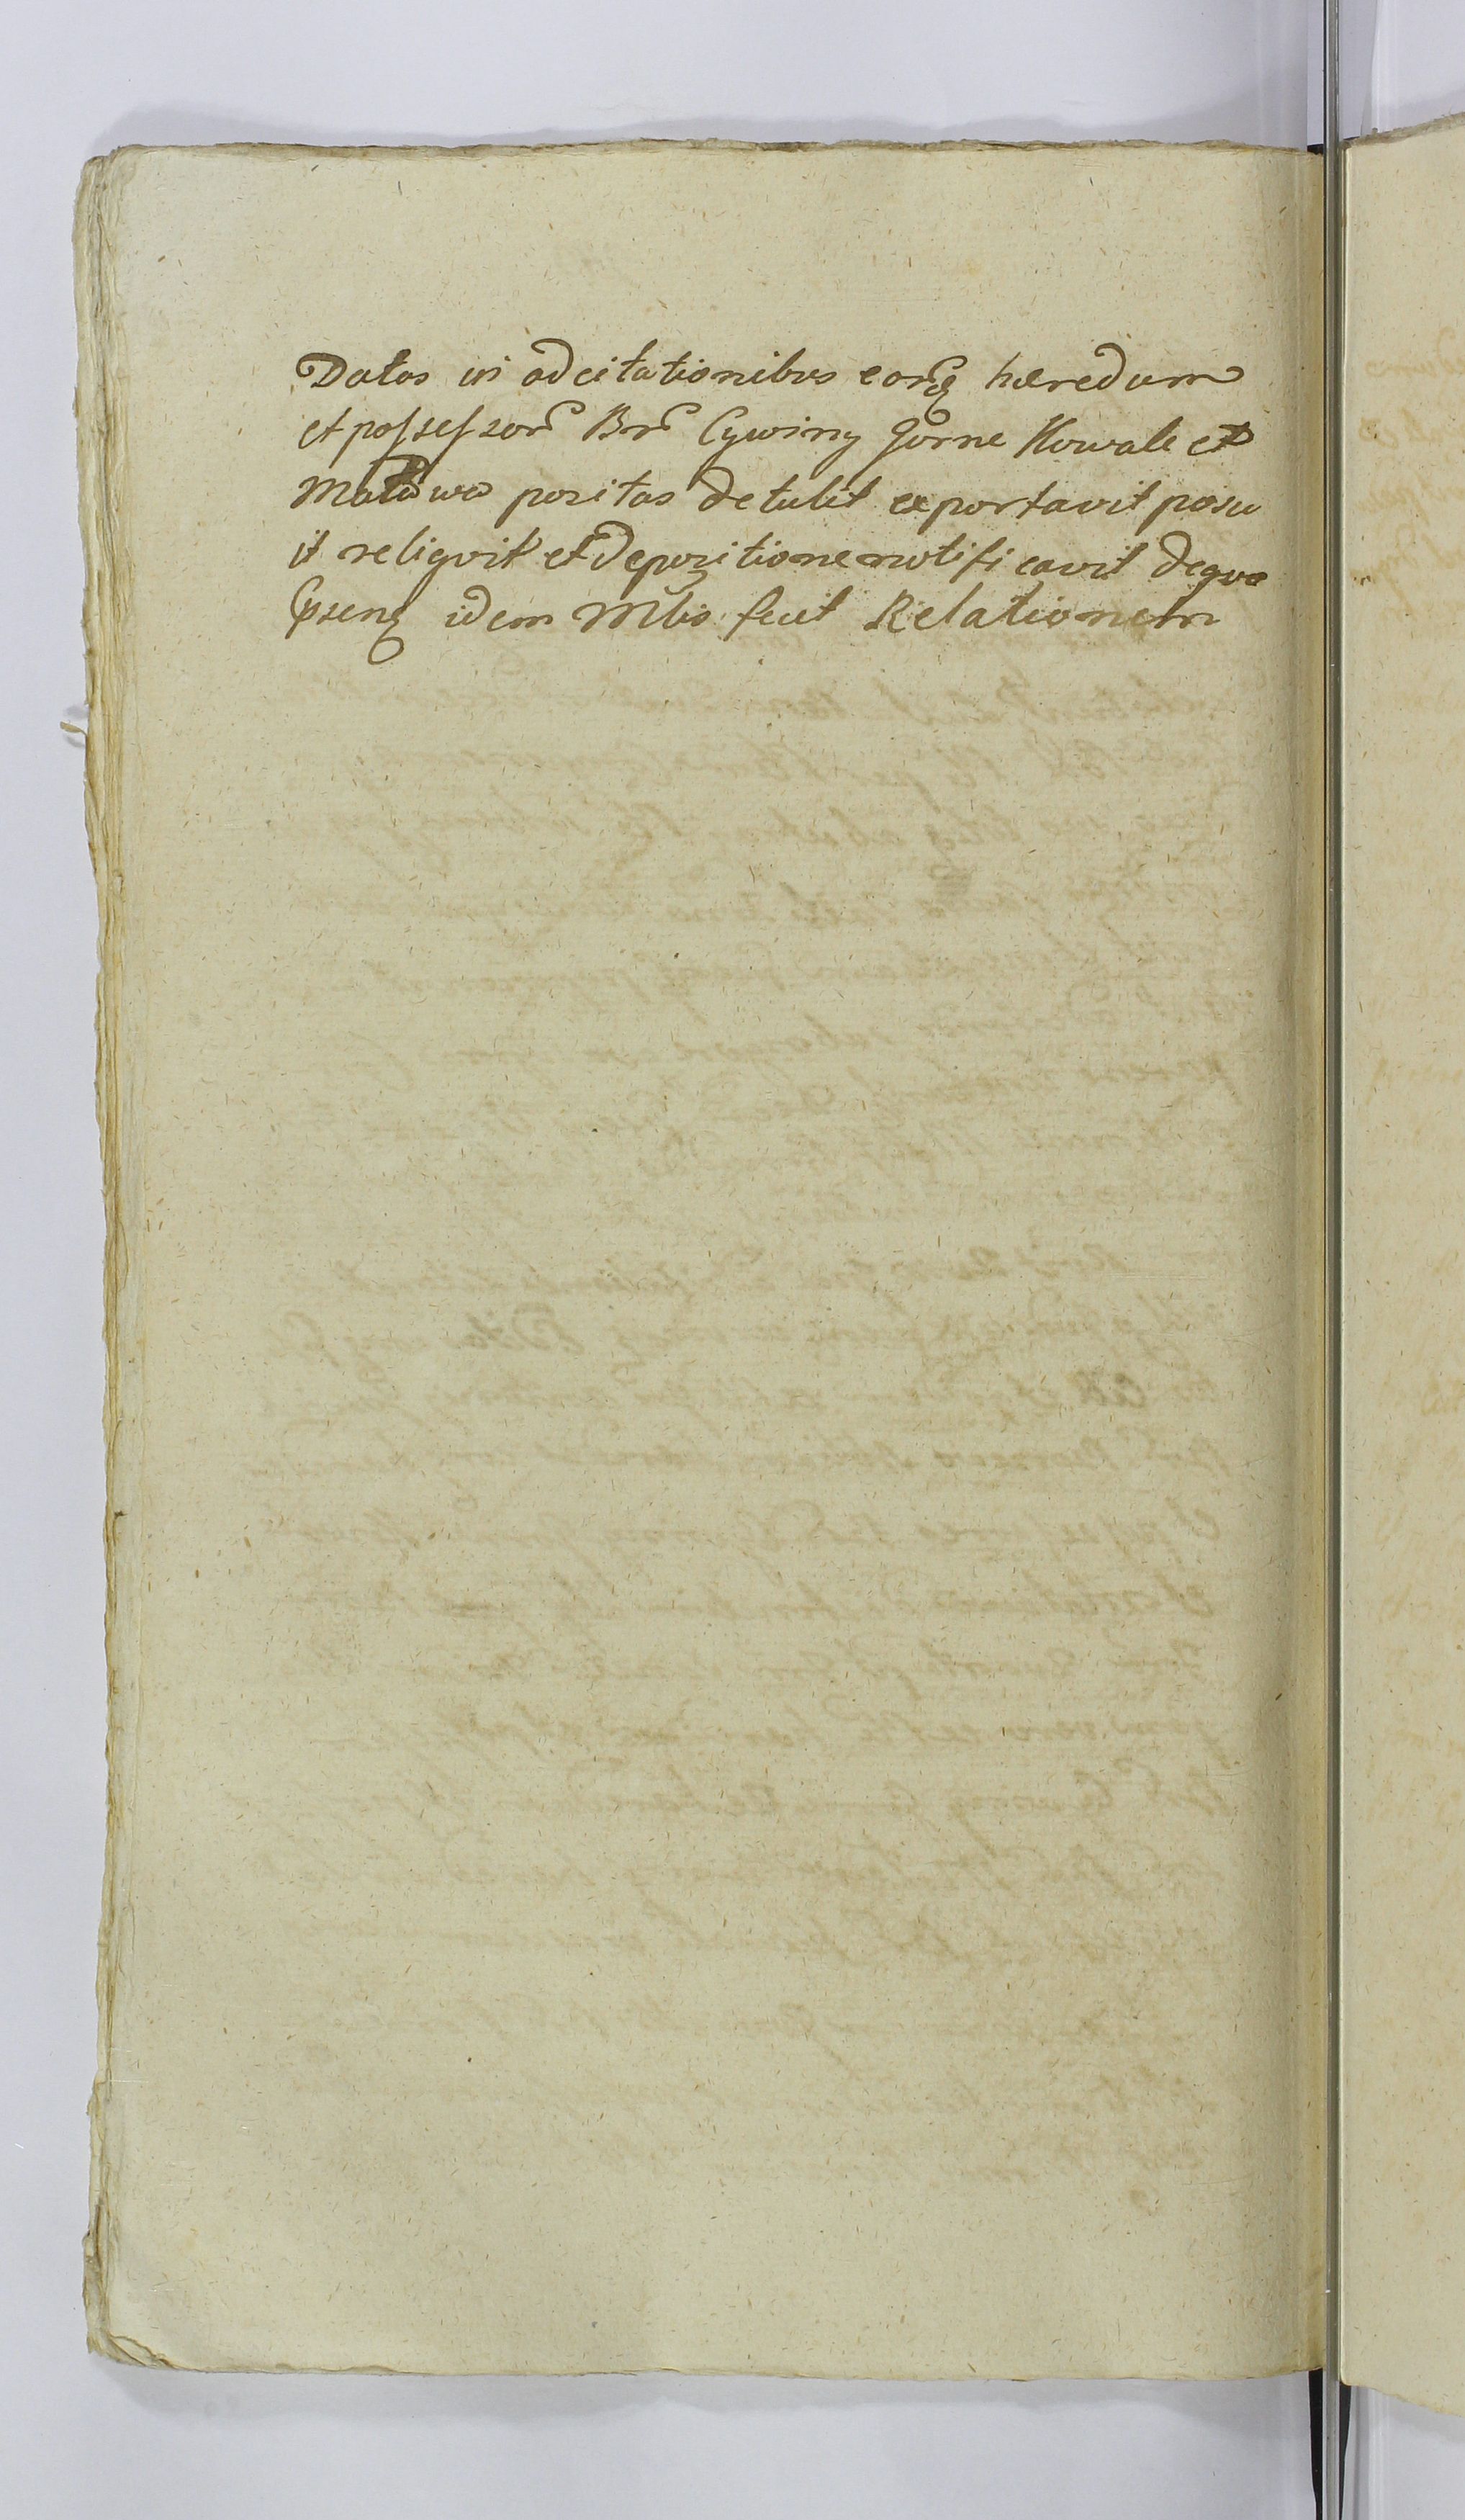 Datas in adcitationibus eorq hæredum
et possessor Bnr Cywiny Gorne Kowale et
Malawa positas detulit exportavit posu
it reliqvit et depozitione notificavit deqva
Ppsenq idem Mlis fecit Relationem